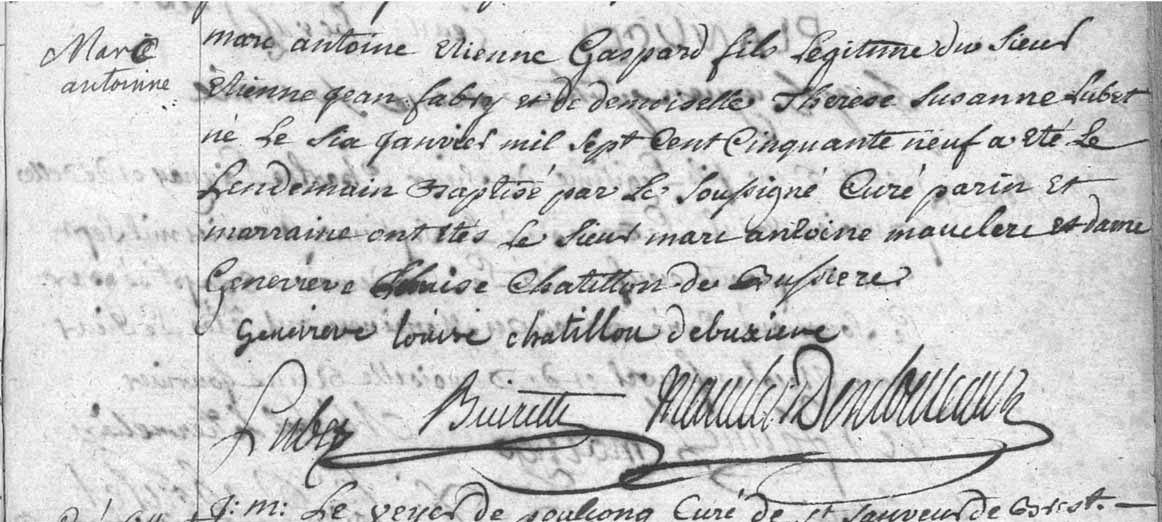 Marc
antoinne
marc antoine etienne Gaspard fils Legitime du Sieur
etienne jean fabry et de demoiselle Therese Susanne Lubet
né Le six janvier mil Sept Cent Cinquante neuf a eté Le
Lendemain Baptisé par le Soussigné Curé parin et
marraine ont etés Le Sieur marc antoine mauclerc et dame
Genevieve Chatillon de Bussiere
genevieve louise chatillon debuxiere
j: m: Le veyer de Curé de st sauveur de Brest. —